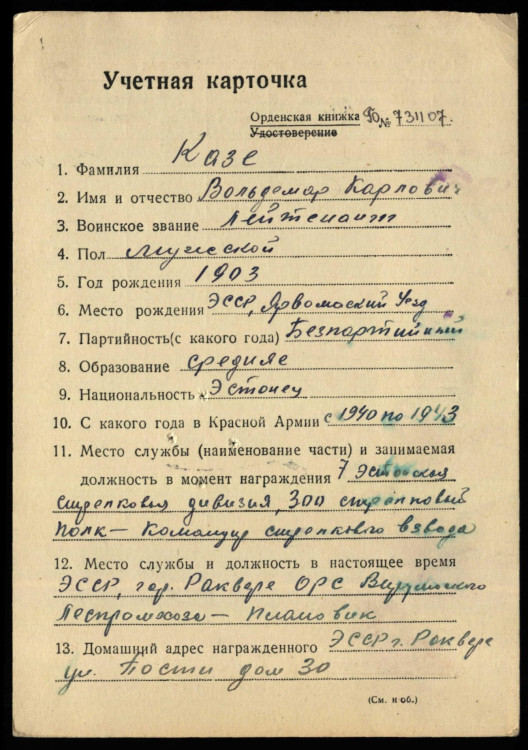 Учетная карточка
Орденская книжка Го № 731107.
Удостоверение
1. Фамилия Казе
2. Имя и отчество Вольдемар Карлович
3. Воинское звание Лейтенант
4. Пол мужской
5. Год рождения 1903
6. Место рождения ЭССР, Ярвамаский Уезд
7. Партийность(с какого года) Безпартийный
8. Образование средние
9. Национальность Эстонец
10. С какого года в Красной Армии с 1940 по 1943
11. Место службы (наименование части) и занимаемая
должность в момент награждения 7 Эстонская
стрелковая дивизия, 300 стрелковый
полк – командир стрелкового взвода
12. Место службы и должность в настоящее время
ЭССР, гор. Раквере ОРС Вирумаского
Леспромхоза – плановик
13. Домашний адрес награжденного ЭССР г. Раквере
ул. Пости дом 30
(См. н об.)